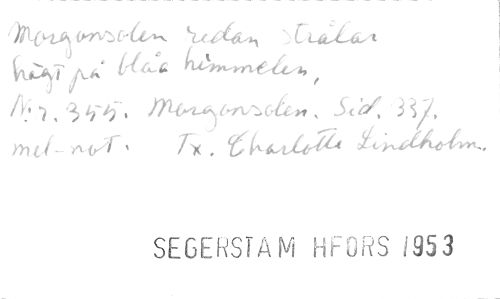 Morgonsolen redan strålar
högt på blåa himmelen,
N:r. 355. Morgonsolen. Sid. 337.
mel-not. Tx. Charlotte Lindholm.
SEGERSTAM HFORS 1953